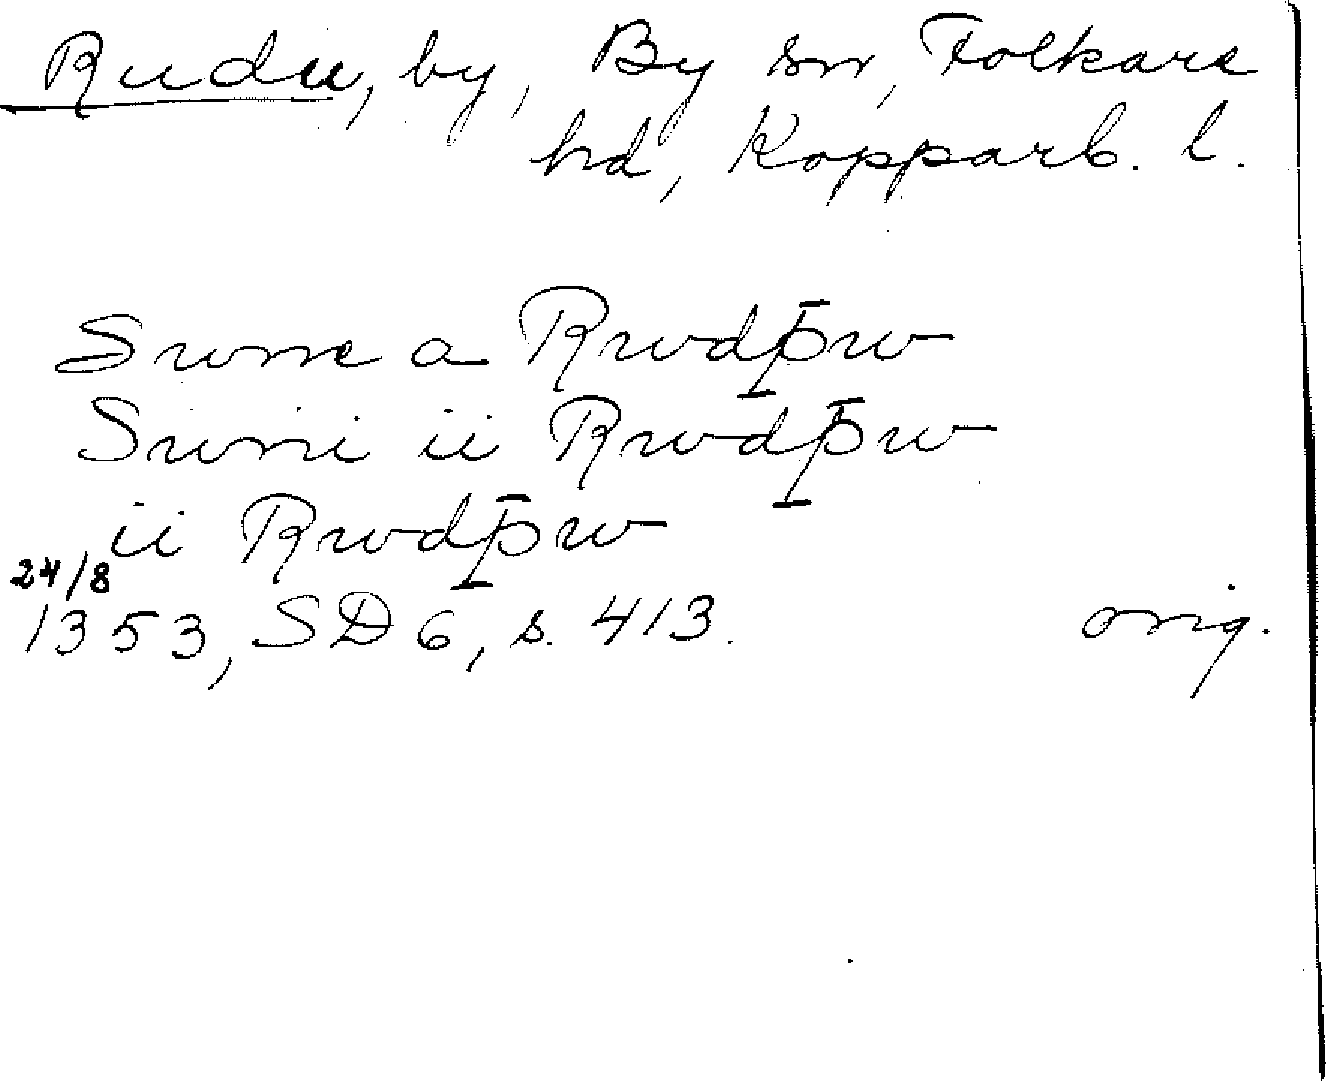 Rudu, by, By sn, Folkare
hd, Kopparb. l.
Swne a Rwdþw
Swni ii Rwdþw
ii Rwdþw
24/8
1353, SD 6, s. 413. orig.